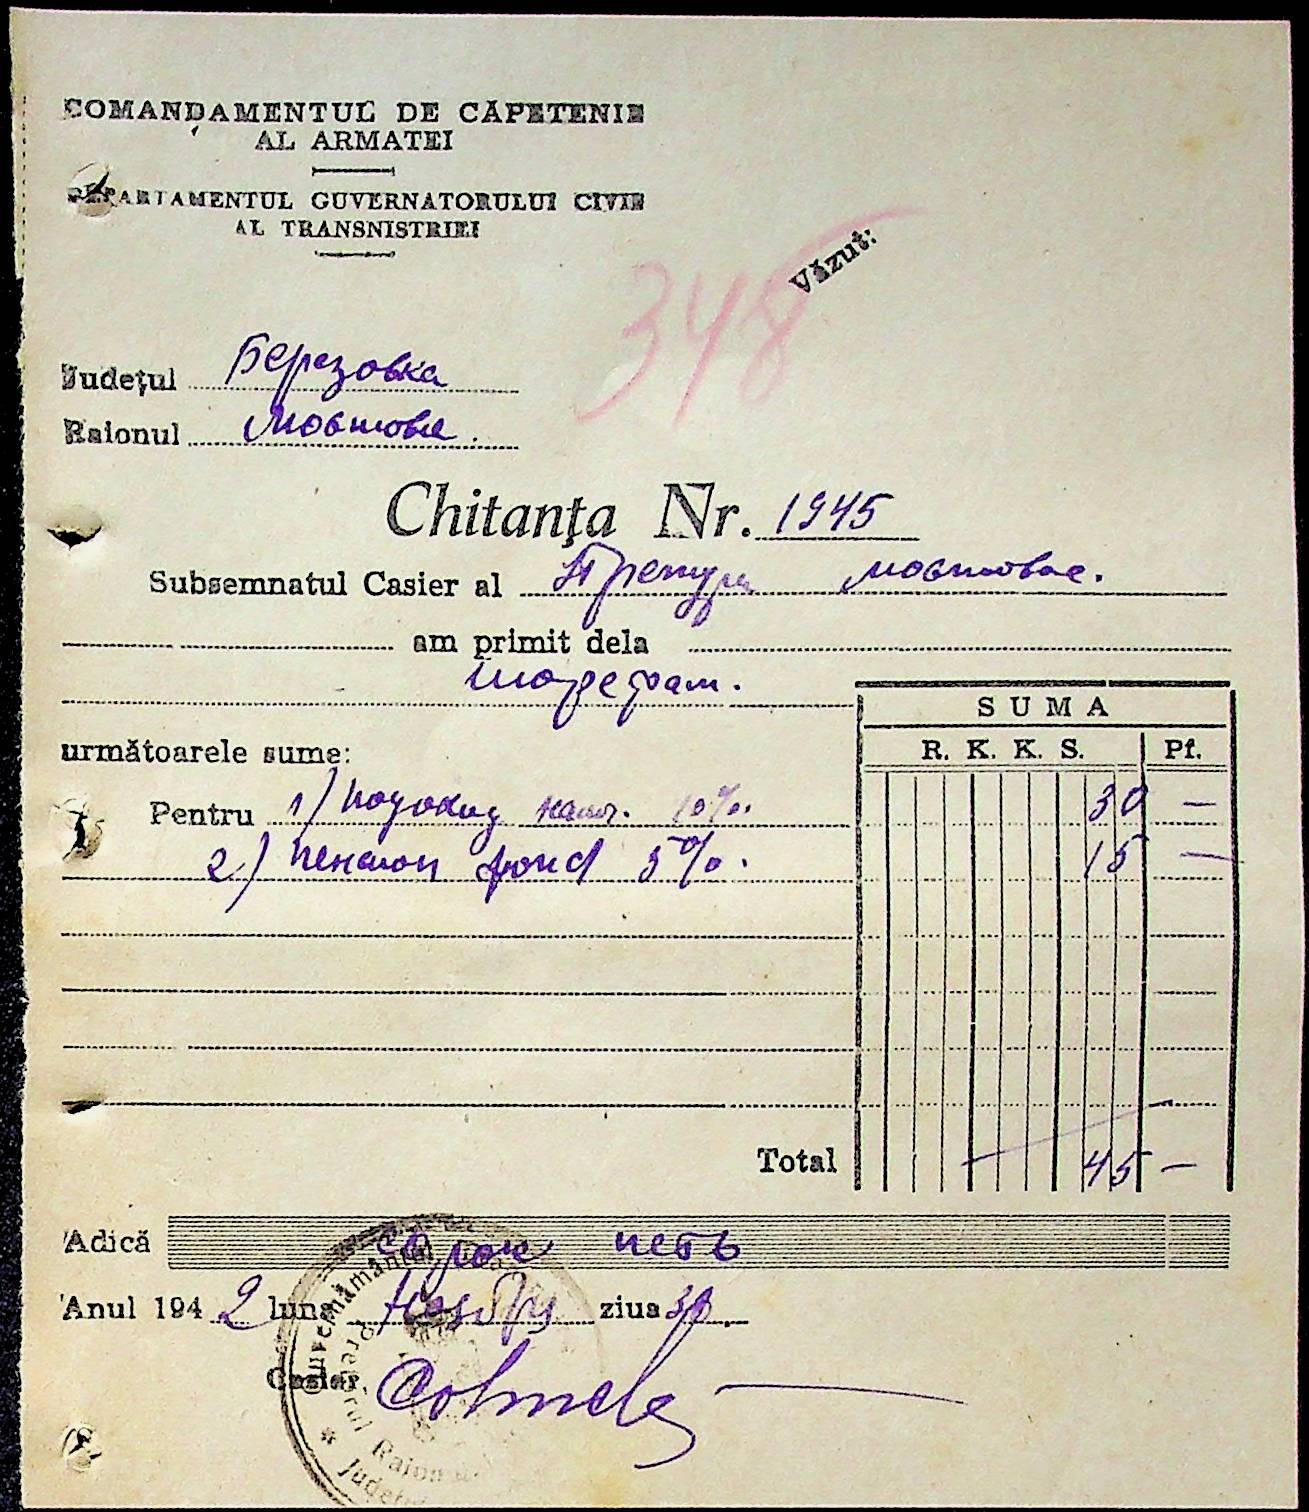 COMANDAMENTUL DE CAPETENIE
AL ARMATEI
DEPARTAMENTUL GUVERNATORULUI CIVIL
AL TRANSNISTRIEI
Văzut:
348
Județul Березовка
Raionul Мостовое
Chitanța Nr. 1945
Subsemnatul Casier al Претура Мостовое.
am primit dela
următoarele sume:
SUMA
R. K. K. S. Pf.
Pentru 1) подоход налог. 10% 30 —
2) пенсион фонд 5%. 15 —
Total 45 —
Adică сорок петь
Anul 1942 luna Ноябрь ziua 30
Casier
Guvernământul
Pretorul Raion
Județ